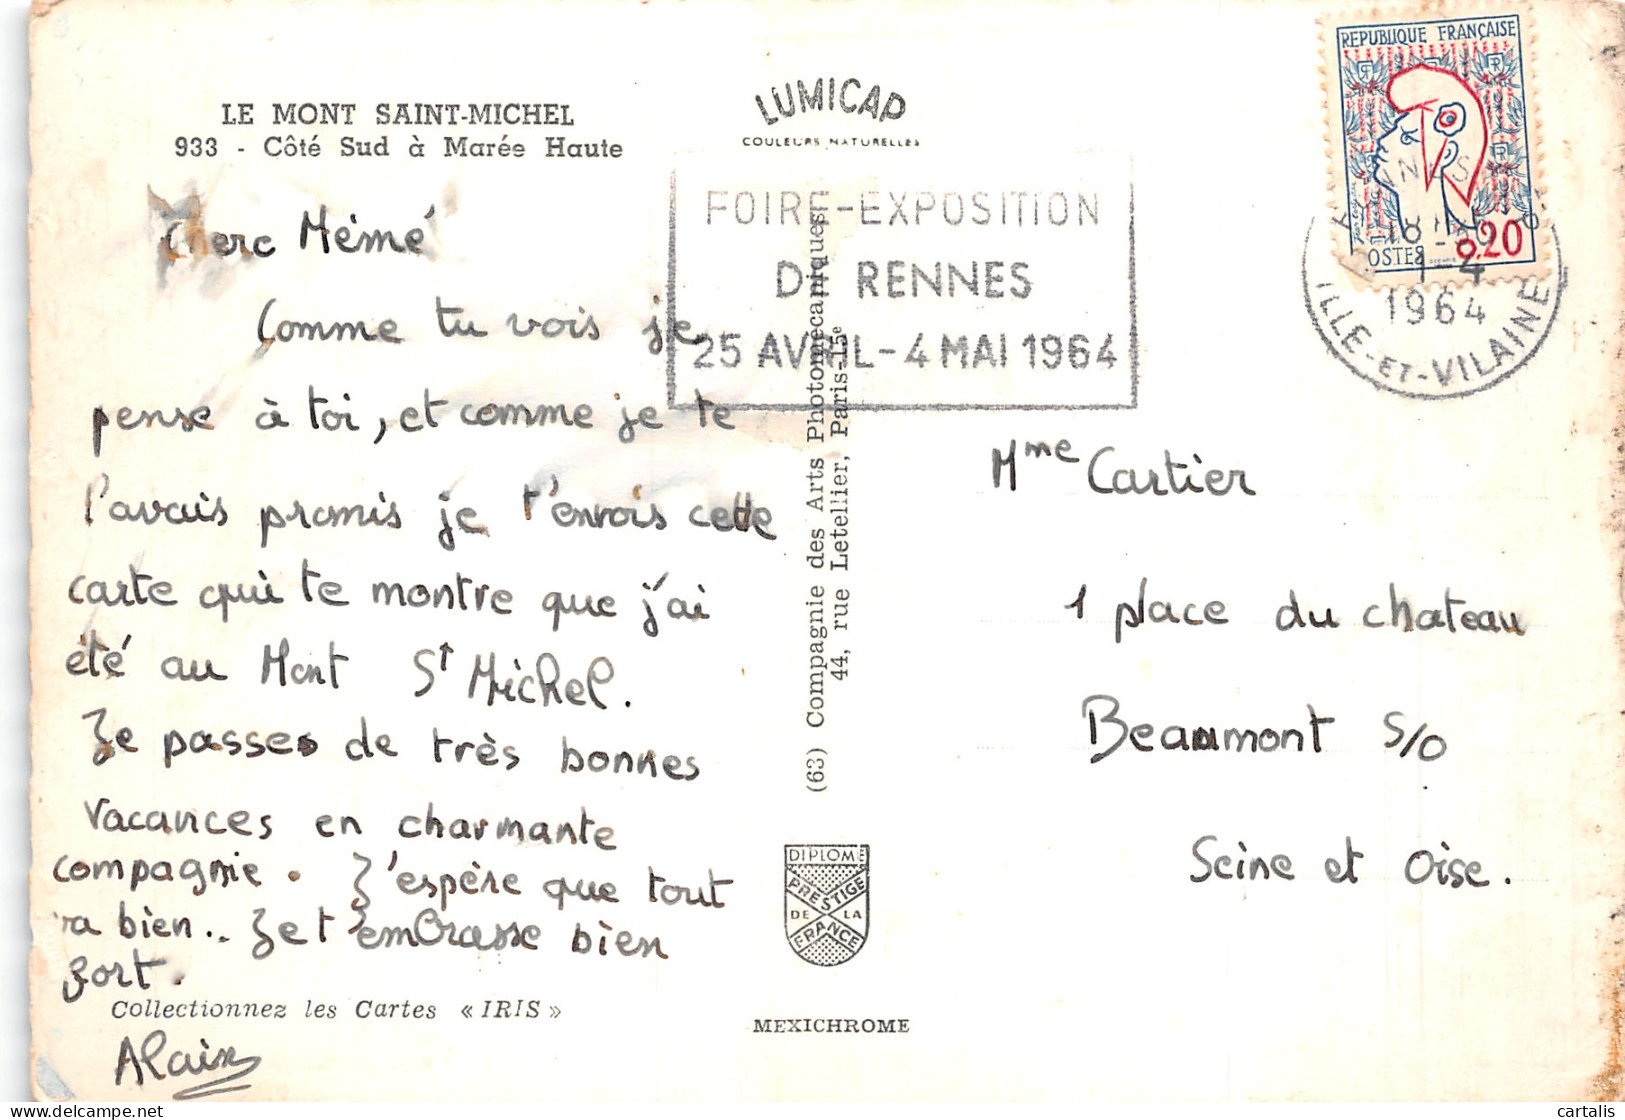 LE MONT SAINT-MICHEL
933 - Côté Sud à Marée Haute
LUMICAP
COULEURS NATURELLES
Chere Mémé
Comme tu vois je
pense à toi, et comme je te
l'avais promis je t'envois cette
carte qui te montre que j'ai
été au Mont St Michel.
Je passes de très bonnes
vacances en charmante
compagnie. J'espère que tout
va bien.. Je t'embrasse bien
fort.
Collectionnez les Cartes « IRIS »
Alain
(63) Compagnie des Arts Photomécaniques
44, rue Letellier, Paris-15e
DIPLOME
PRESTIGE
DE LA
FRANCE
MEXICHROME
FOIRE-EXPOSITION
DE RENNES
25 AVRIL-4 MAI 1964
REPUBLIQUE FRANÇAISE
POSTES 0,20
RENNES
1-4
1964
ILLE-ET-VILAINE
Mme Cartier
1 place du chateau
Beaumont S/O
Seine et Oise.
cartalis